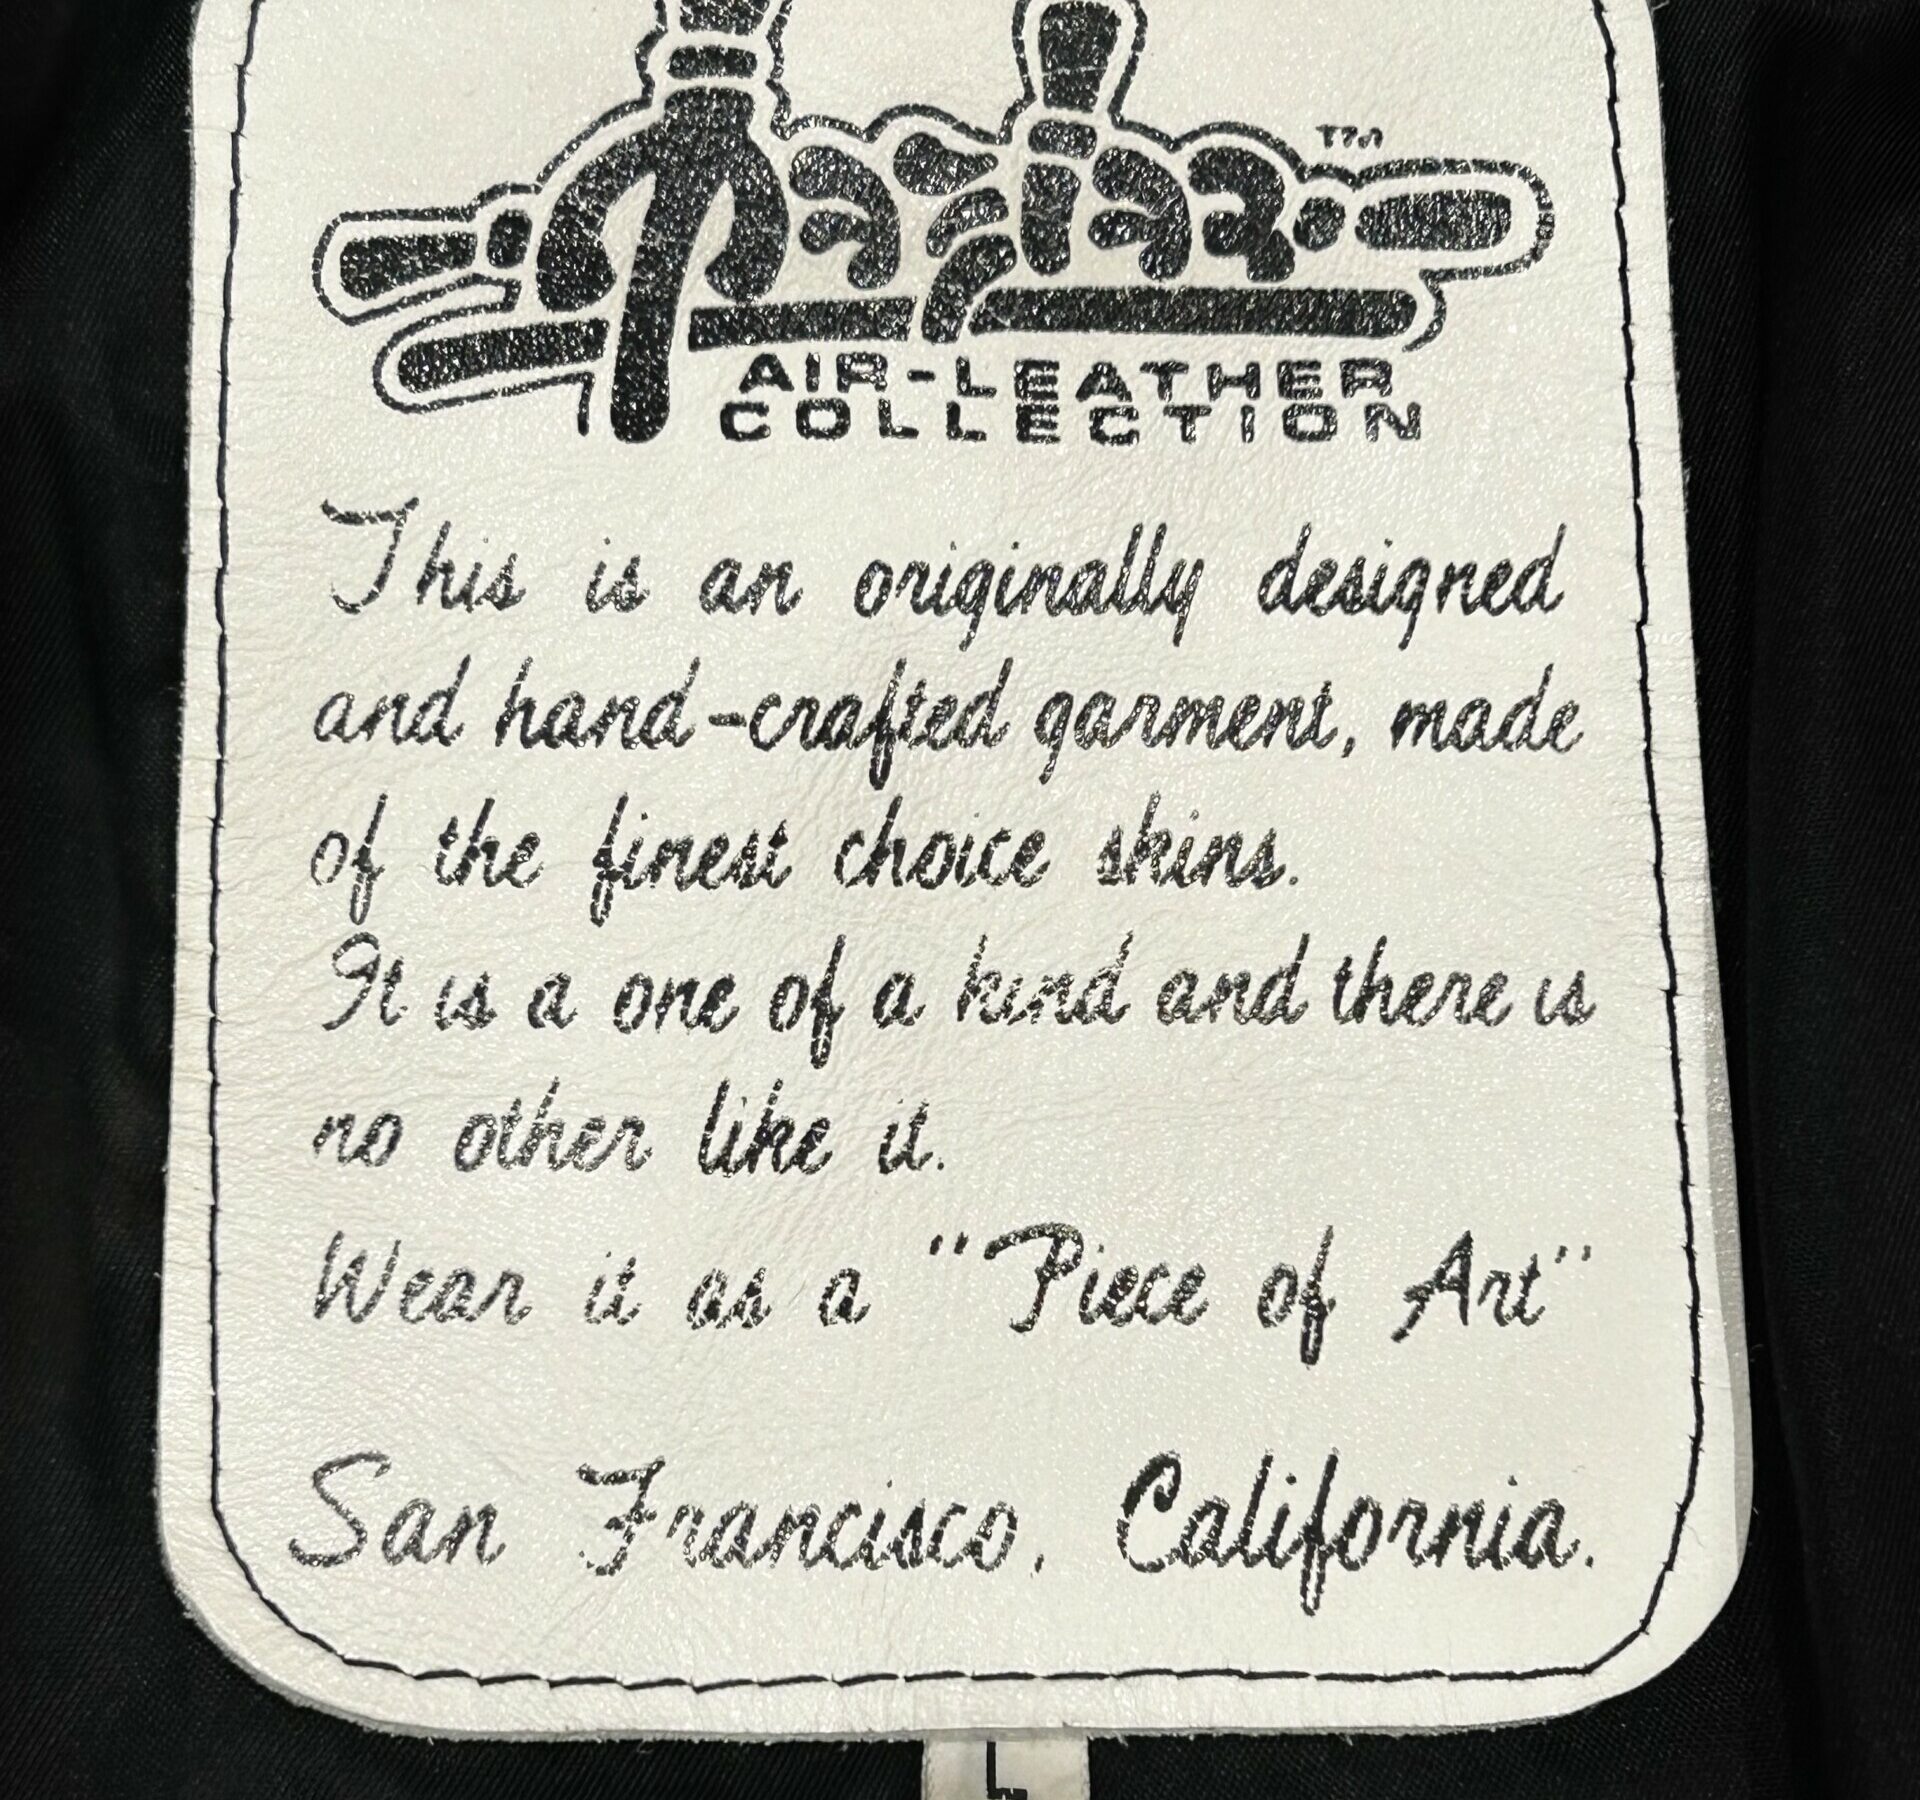 TM
AIR-LEATHER
COLLECTION
This is an originally designed
and hand-crafted garment, made
of the finest choice skins.
It is a one of a kind and there is
no other like it.
Wear it as a "Piece of Art"
San Francisco, California.
L